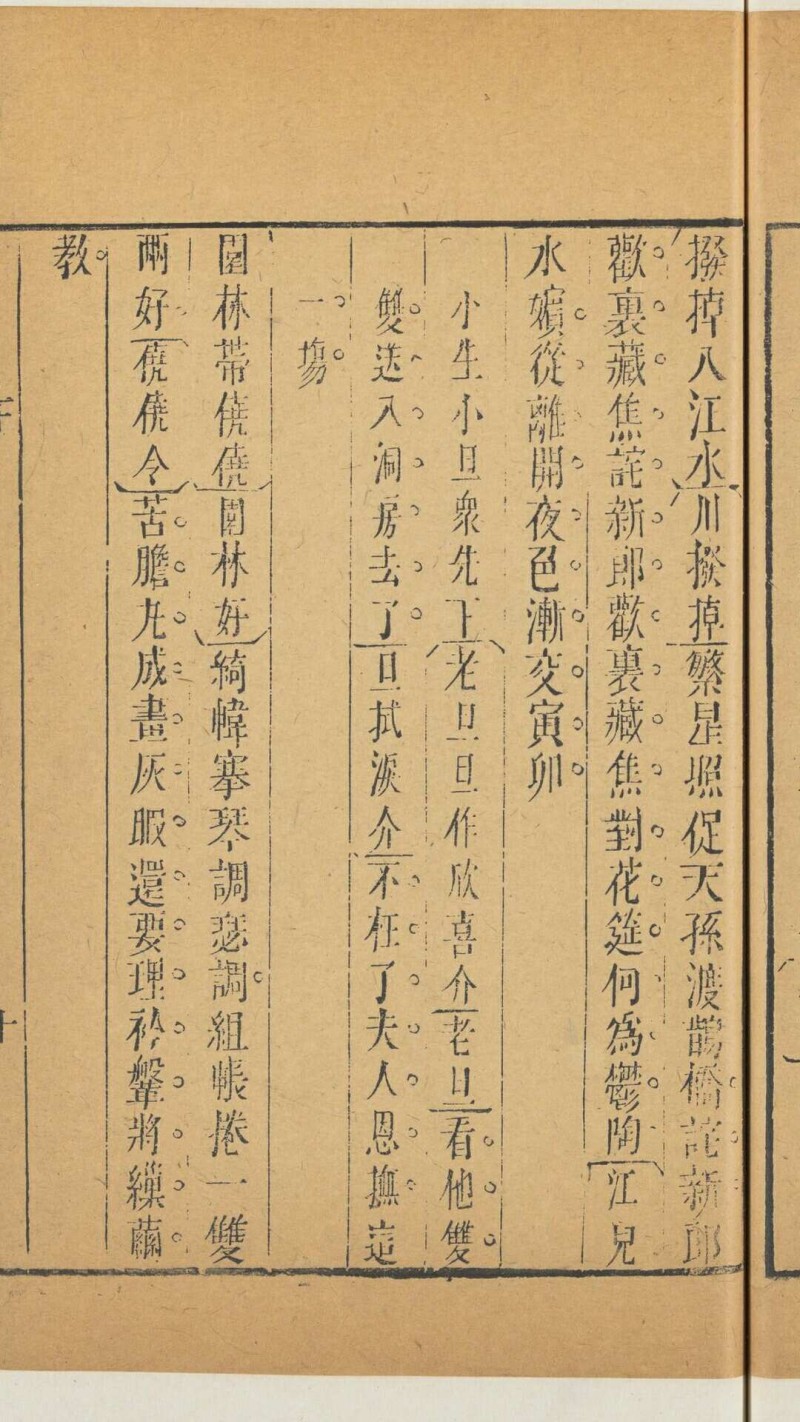 撥掉入江水川撥掉繁星照促天孫渡鵲橋詫新郎
歡裏藏焦詫新郎歡裏藏焦對花筵何爲鬱陶江兒
水嬪從離開夜色漸交寅卯
小生小旦衆先下老旦旦作欣喜介老旦看他雙
雙送入洞房去了旦拭淚介不枉了夫人恩撫這
一塲
園林帶僥僥園林好綺幃搴琴調瑟調組帳捲一雙
兩好僥僥令苦膽丸成畫灰服還要理衿鞶將繅繭
教